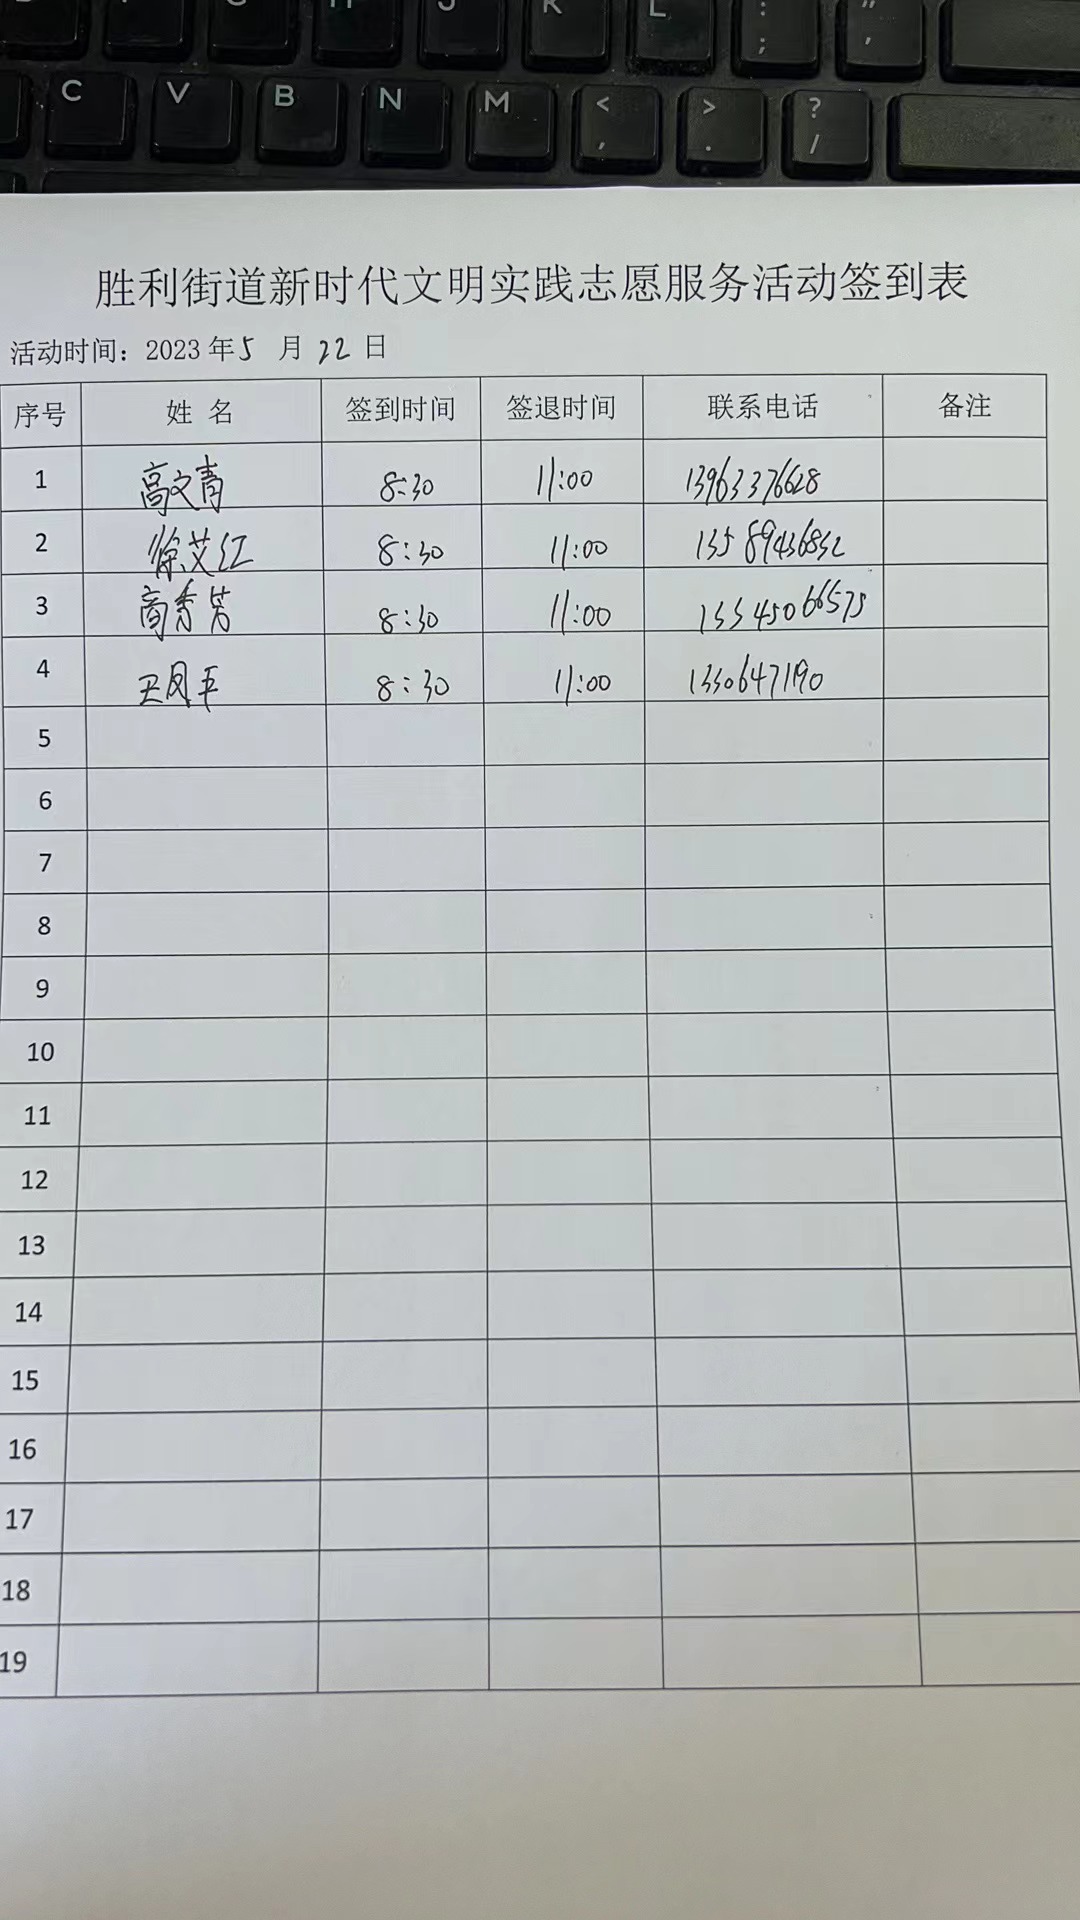 C V B N M < , > . ? /
胜利街道新时代文明实践志愿服务活动签到表
活动时间：2023年5月22日
序号 姓名 签到时间 签退时间 联系电话 备注
1 高文青 8:30 11:00 13963376628
2 徐艾红 8:30 11:00 13589436832
3 高秀芳 8:30 11:00 13345066575
4 王凤平 8:30 11:00 1330647190
5
6
7
8
9
10
11
12
13
14
15
16
17
18
19